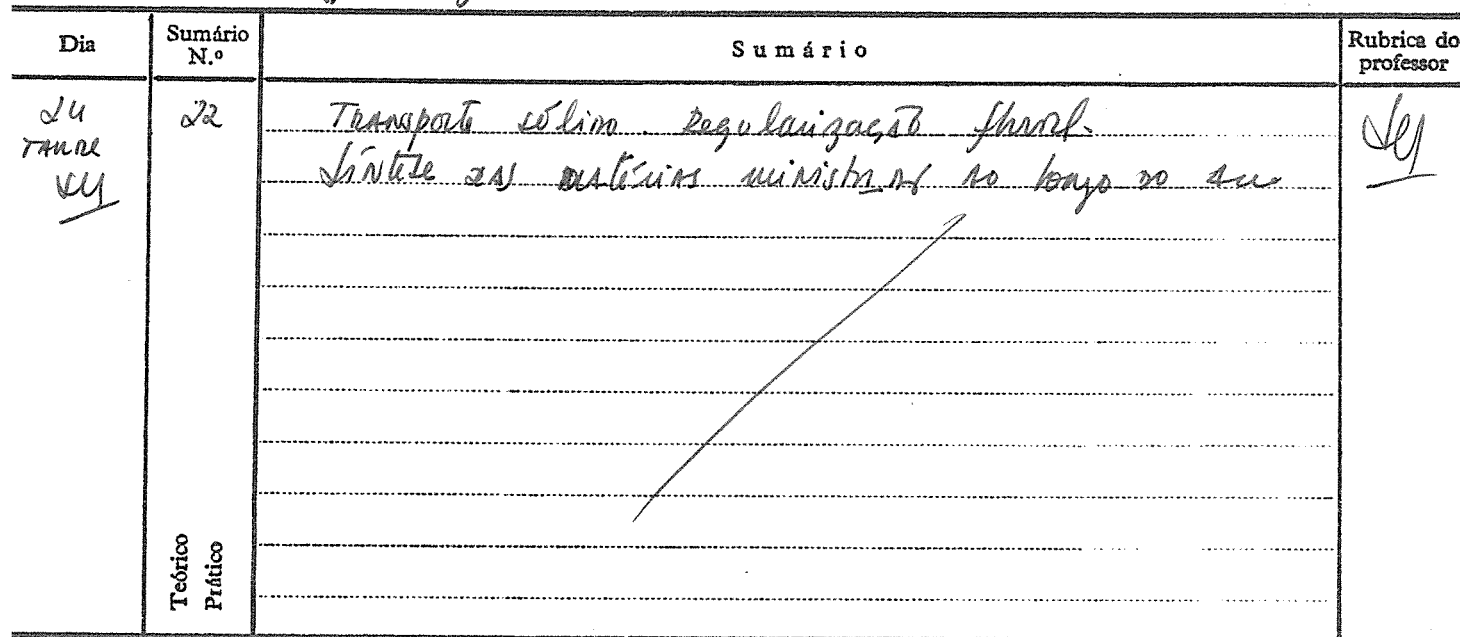 Dia
Sumário N.º
Sumário
Rubrica do professor
24
TARDE
22
Transporte sólido. Regularização fluvial.
Síntese das matérias ministradas ao longo do
Teórico
Prático